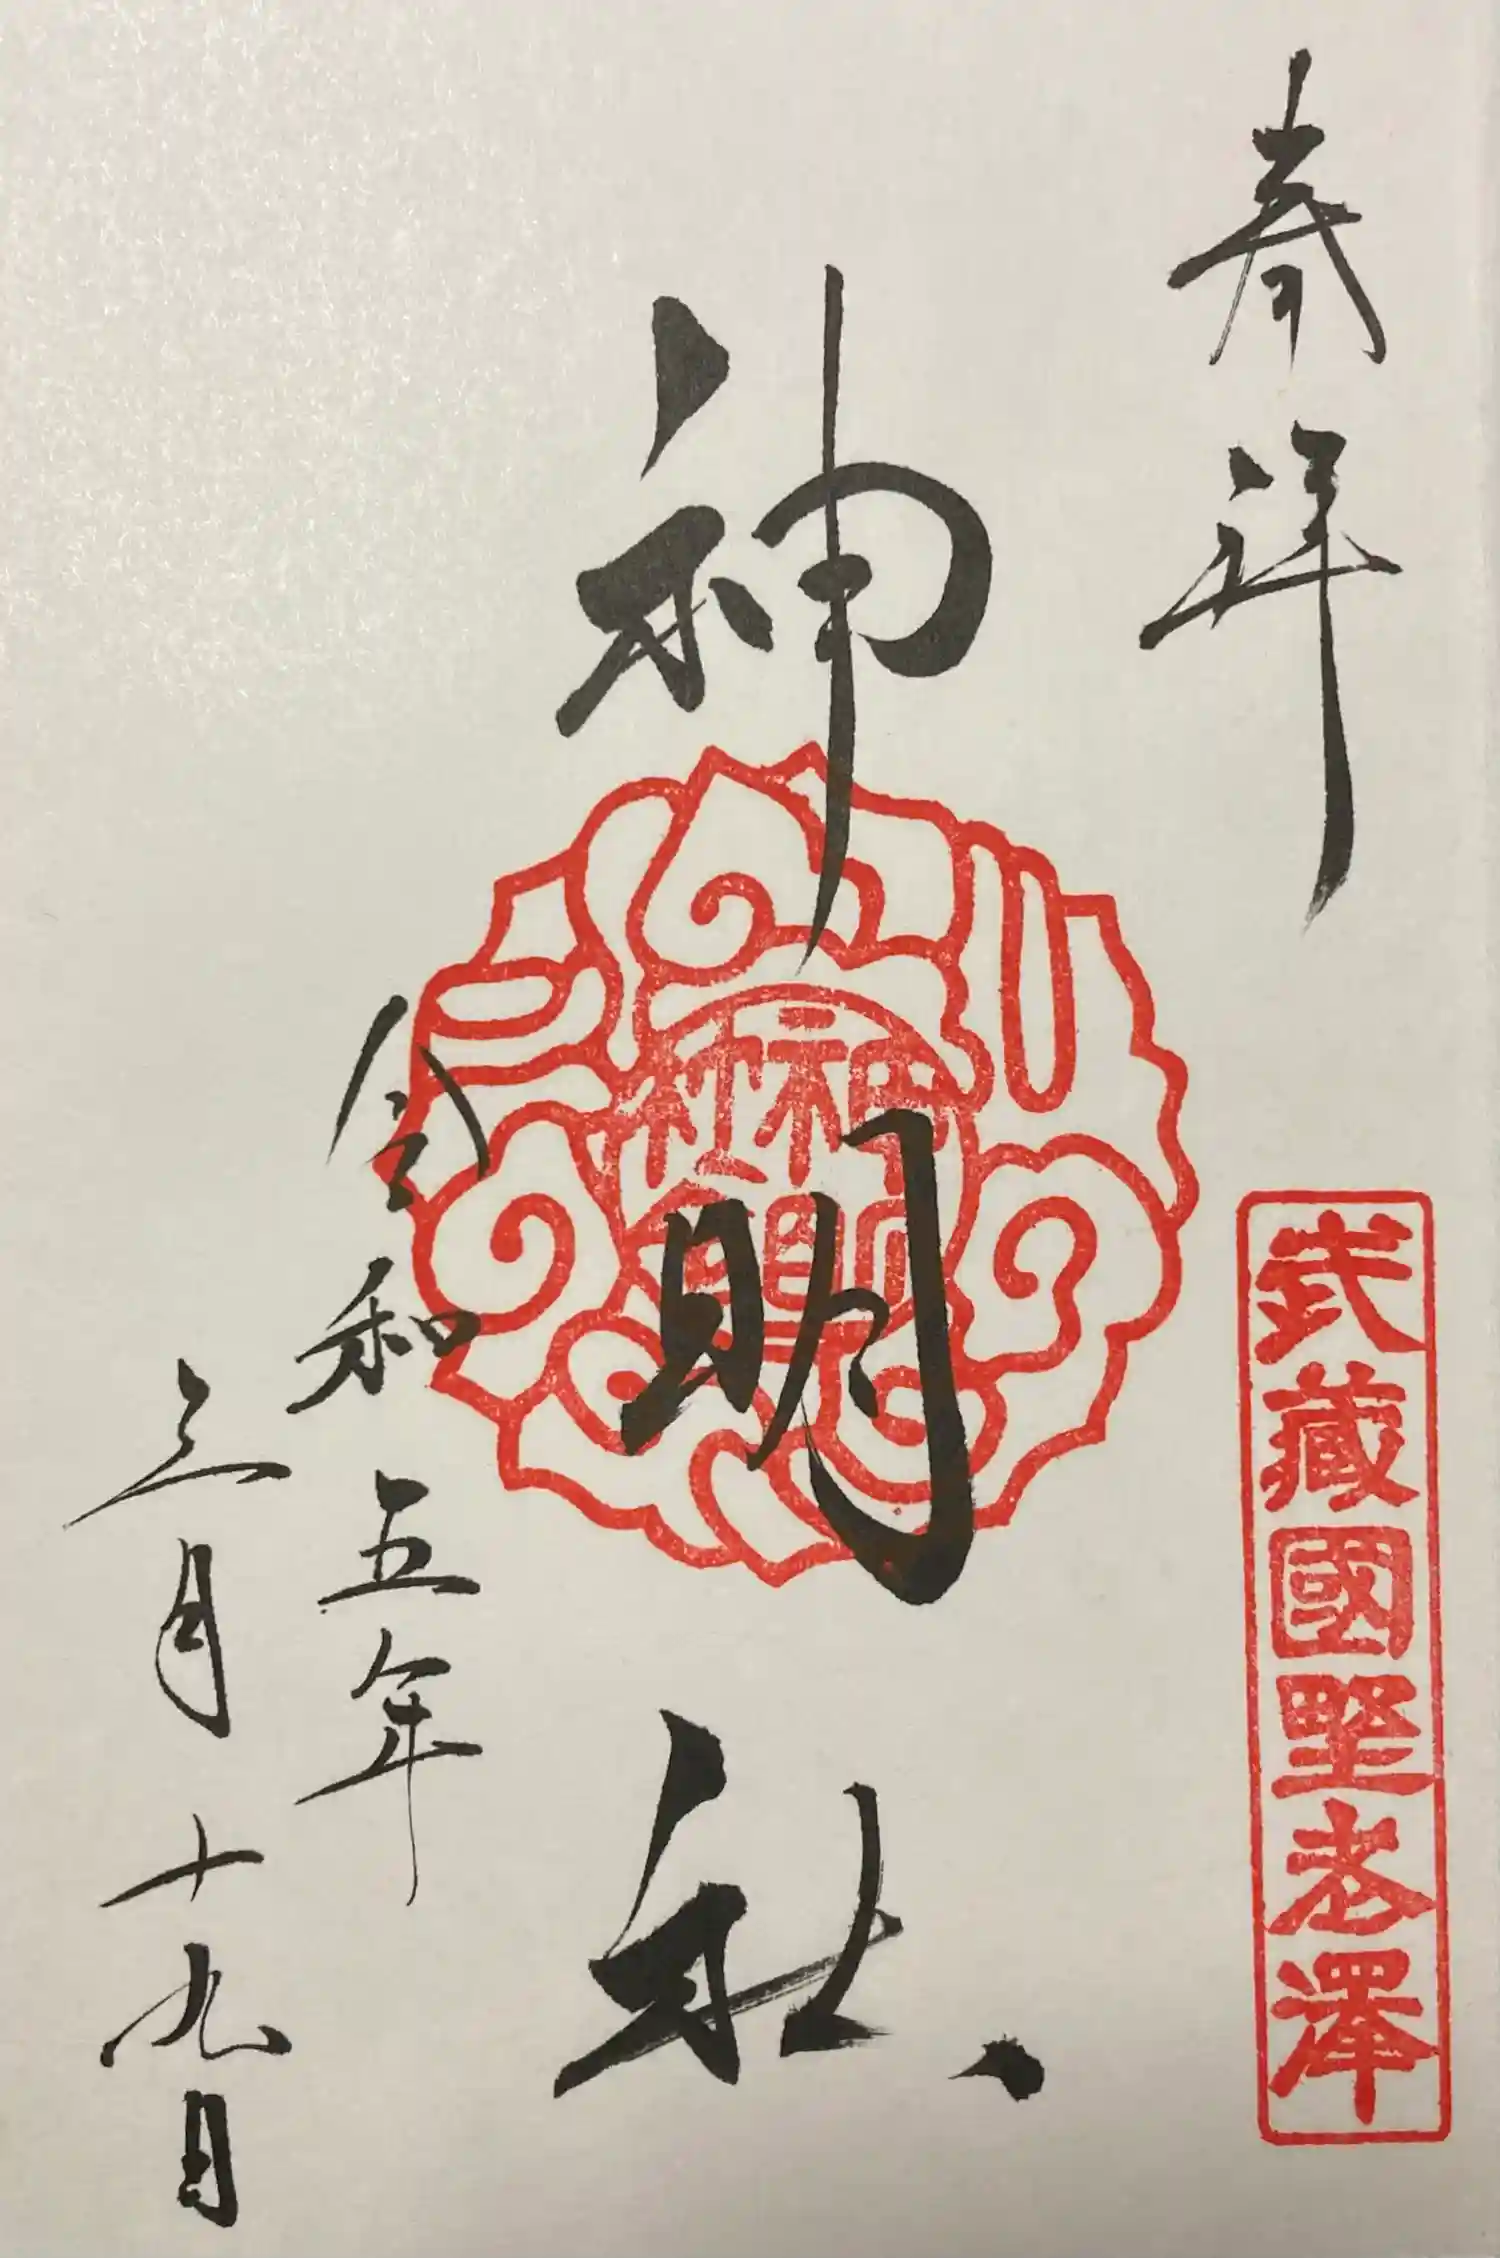 奉拝
武藏國野老澤
神明社
令和五年
三月十九日